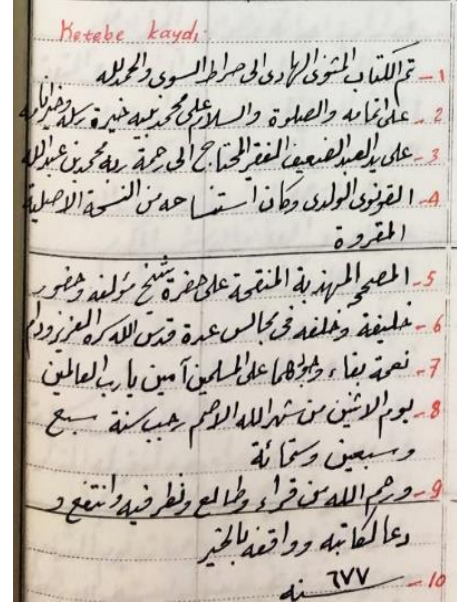 Ketebe kaydı:
1- تم الكتاب المثنوى الهادى الى صراط السوى والحمد لله
2- على اتمامه والصلوة والسلام على محمد نبيه خيرة رسله وخير انامه
3- على يد العبد الضعيف الفقير المحتاج الى رحمة ربه محمد بن عبد الله
4- القونوى الولدى وكان استنساخه من النسخة الاصلية
المقروة
5- المصحح المهذبة المنقحة على حضرة شيخ مؤلفه وحضور
6- خليفة وخلفه فى مجالس عدة قدس الله سره العزيز ودام
7- نعمة بقاء وجواهما على المسلمين آمين يا رب العالمين
8- يوم الاثنين من شهر الله الاصم رجب سنة سبع
وسبعين وستمائة
9- ورحم الله من قراء وطالع ونظر فيه وانتفع و
دعا لكاتبه وواقفه بالخير
10- سنه ٦٧٧